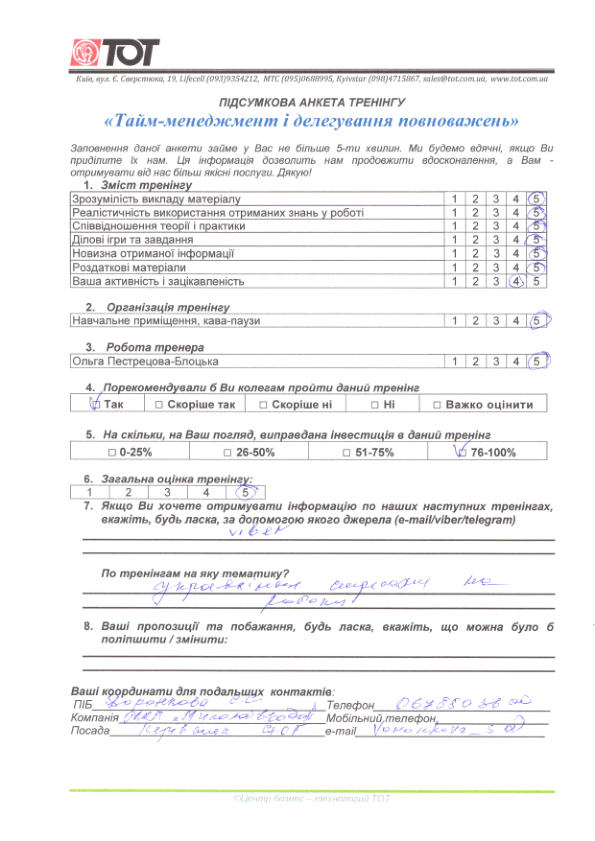 ТОТ
Київ, вул. Є. Сверстюка, 19, Lifecell (093)9354212, МТС (095)0688995, Kyivstar (098)4715867, sales@tot.com.ua, www.tot.com.ua
ПІДСУМКОВА АНКЕТА ТРЕНІНГУ
«Тайм-менеджмент і делегування повноважень»
Заповнення даної анкети займе у Вас не більше 5-ти хвилин. Ми будемо вдячні, якщо Ви
приділите їх нам. Ця інформація дозволить нам продовжити вдосконалення, а Вам -
отримувати від нас більш якісні послуги. Дякую!
1. Зміст тренінгу
Зрозумілість викладу матеріалу 1 2 3 4 5
Реалістичність використання отриманих знань у роботі 1 2 3 4 5
Співвідношення теорії і практики 1 2 3 4 5
Ділові ігри та завдання 1 2 3 4 5
Новизна отриманої інформації 1 2 3 4 5
Роздаткові матеріали 1 2 3 4 5
Ваша активність і зацікавленість 1 2 3 4 5
2. Організація тренінгу
Навчальне приміщення, кава-паузи 1 2 3 4 5
3. Робота тренера
Ольга Пестрецова-Блоцька 1 2 3 4 5
4. Порекомендували б Ви колегам пройти даний тренінг
□ Так □ Скоріше так □ Скоріше ні □ Ні □ Важко оцінити
5. На скільки, на Ваш погляд, виправдана інвестиція в даний тренінг
□ 0-25% □ 26-50% □ 51-75% □ 76-100%
6. Загальна оцінка тренінгу:
1 2 3 4 5
7. Якщо Ви хочете отримувати інформацію по наших наступних тренінгах,
вкажіть, будь ласка, за допомогою якого джерела (e-mail/viber/telegram)
viber
По тренінгам на яку тематику?
управління на
роботі
8. Ваші пропозиції та побажання, будь ласка, вкажіть, що можна було б
поліпшити / змінити:
Ваші координати для подальших контактів:
ПІБ Телефон
Компанія Мобільний телефон
Посада Керівник e-mail
©Центр бізнес – технологій ТОТ